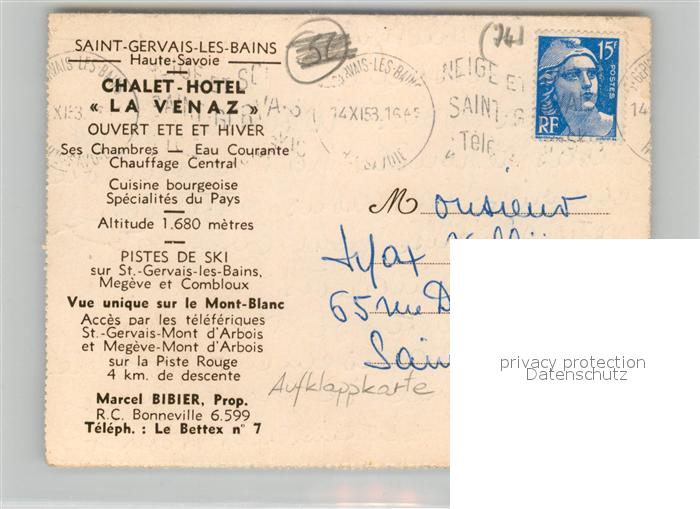 SAINT-GERVAIS-LES-BAINS
Haute-Savoie
CHALET-HOTEL
« LA VENAZ »
OUVERT ETE ET HIVER
Ses Chambres — Eau Courante
Chauffage Central
Cuisine bourgeoise
Spécialités du Pays
Altitude 1.680 mètres
PISTES DE SKI
sur St.-Gervais-les-Bains,
Megève et Combloux
Vue unique sur le Mont-Blanc
Accès par les téléfériques
St.-Gervais-Mont d'Arbois
et Megève-Mont d'Arbois
sur la Piste Rouge
4 km. de descente
Marcel BIBIER, Prop.
R.C. Bonneville 6.599
Téléph. : Le Bettex n° 7
(74)
14 XI 53. 16 45
NEIGE ET
SAINT-G
Télé
15F
POSTES
RF
Monsieur
65 rue D
Sain
Aufklappkarte
privacy protection
Datenschutz